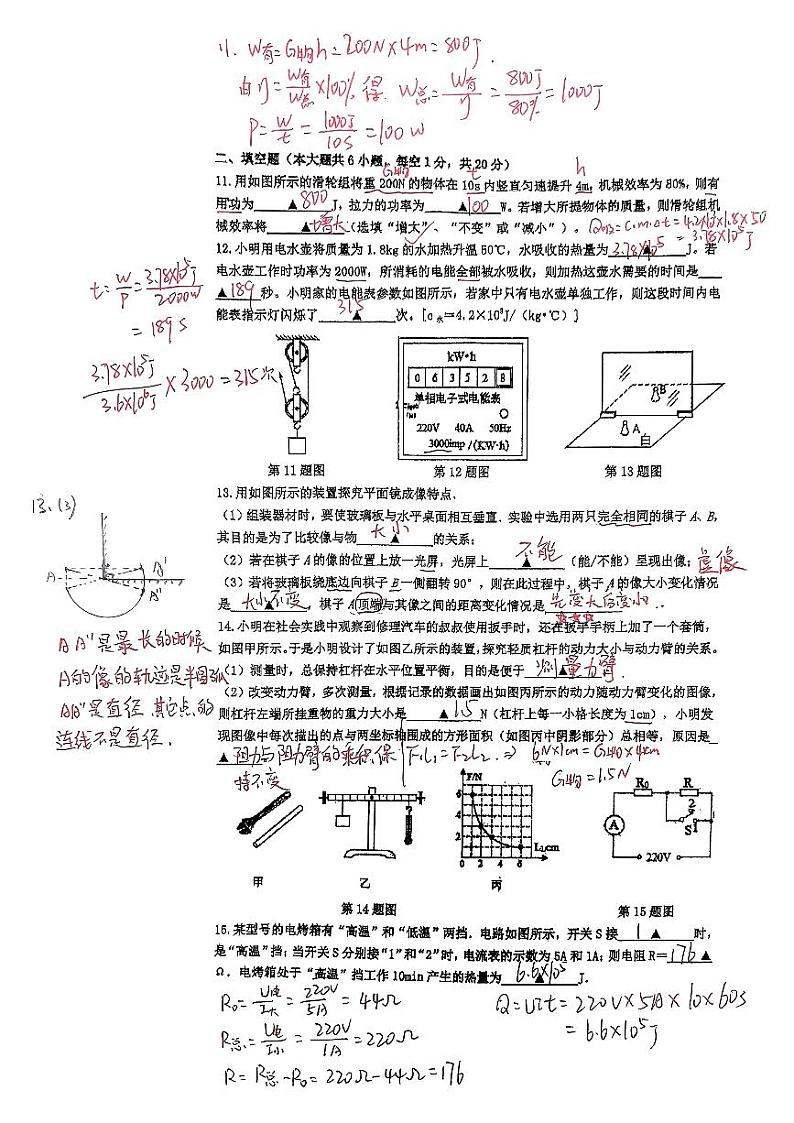 11. W有=G物h=200N×4m=800J.
由η=W有/W总×100%得 W总=W有/η=800J/80%=1000J
P=W/t=1000J/10s=100W
二、填空题（本大题共6小题，每空1分，共20分）
G物 t h
11.用如图所示的滑轮组将重200N的物体在10s内竖直匀速提升4m,机械效率为80%,则有
用功为 ▲800 J,拉力的功率为 ▲100 W。若增大所提物体的质量，则滑轮组机
械效率将 ▲增大 (选填“增大”、“不变”或“减小”)。 Q吸=c.m.Δt=4.2×10³×1.8×50
=3.78×10⁵J
12.小明用电水壶将质量为1.8kg的水加热升温50℃,水吸收的热量为 3.78×10⁵ ▲ J。若
电水壶工作时功率为2000W,所消耗的电能全部被水吸收，则加热这壶水需要的时间是
▲189 秒。小明家的电能表参数如图所示，若家中只有电水壶单独工作，则这段时间内电
能表指示灯闪烁了 315 ▲ 次。[c水=4.2×10³J/(kg·℃)]
t=W/P=3.78×10⁵J/2000W
=189s
3.78×10⁵J/3.6×10⁶J×3000=315次
kW·h
0 6 3 5 2 8
单相电子式电能表
220V 40A 50Hz
3000imp/(KW·h)
B
A
白
第11题图 第12题图 第13题图
13.用如图所示的装置探究平面镜成像特点.
(1)组装器材时，要使玻璃板与水平桌面相互垂直.实验中选用两只完全相同的棋子A、B,
其目的是为了比较像与物 大小 ▲ 的关系；
(2)若在棋子A的像的位置上放一光屏，光屏上 不能 ▲ (能/不能)呈现出像； 虚像
(3)若将玻璃板绕底边向棋子B一侧翻转90°，则在此过程中，棋子A的像大小变化情况
是 大小不变 ▲ ，棋子A顶端与其像之间的距离变化情况是 先变大后变小 .
13、(3)
A A' A''
AA''是最长的时候
A的像的轨迹是半圆弧
AA''是直径.其它点的
连线不是直径.
14.小明在社会实践中观察到修理汽车的叔叔使用扳手时，还在扳手手柄上加了一个套筒，
如图甲所示.于是小明设计了如图乙所示的装置，探究轻质杠杆的动力大小与动力臂的关系。
(1)测量时，总保持杠杆在水平位置平衡，目的是便于 测量力臂 .
(2)改变动力臂，多次测量，根据记录的数据画出如图丙所示的动力随动力臂变化的图像，
则杠杆左端所挂重物的重力大小是 ▲1.5 N(杠杆上每一小格长度为1cm),小明发
现图像中每次描出的点与两坐标轴围成的方形面积(如图丙中阴影部分)总相等，原因是
▲阻力与阻力臂的乘积保 F₁L₁=F₂L₂ ⇒ 6N×1cm=G物×4cm
持不变 G物=1.5N
F/N
6
4
2
0 2 4 6 L₁cm
甲 乙 丙
R₀ R
2
S 1
A
220V
第14题图 第15题图
15.某型号的电烤箱有“高温”和“低温”两挡.电路如图所示，开关S接 1 ▲ 时，
是“高温”挡；当开关S分别接“1”和“2”时，电流表的示数为5A和1A;则电阻R= 176 ▲
Ω.电烤箱处于“高温”挡工作10min产生的热量为 6.6×10⁵ ▲ J.
R₀=U电/I大=220V/5A=44Ω
Q=UIt=220V×5A×10×60s
=6.6×10⁵J
R总=U电/I小=220V/1A=220Ω
R=R总-R₀=220Ω-44Ω=176